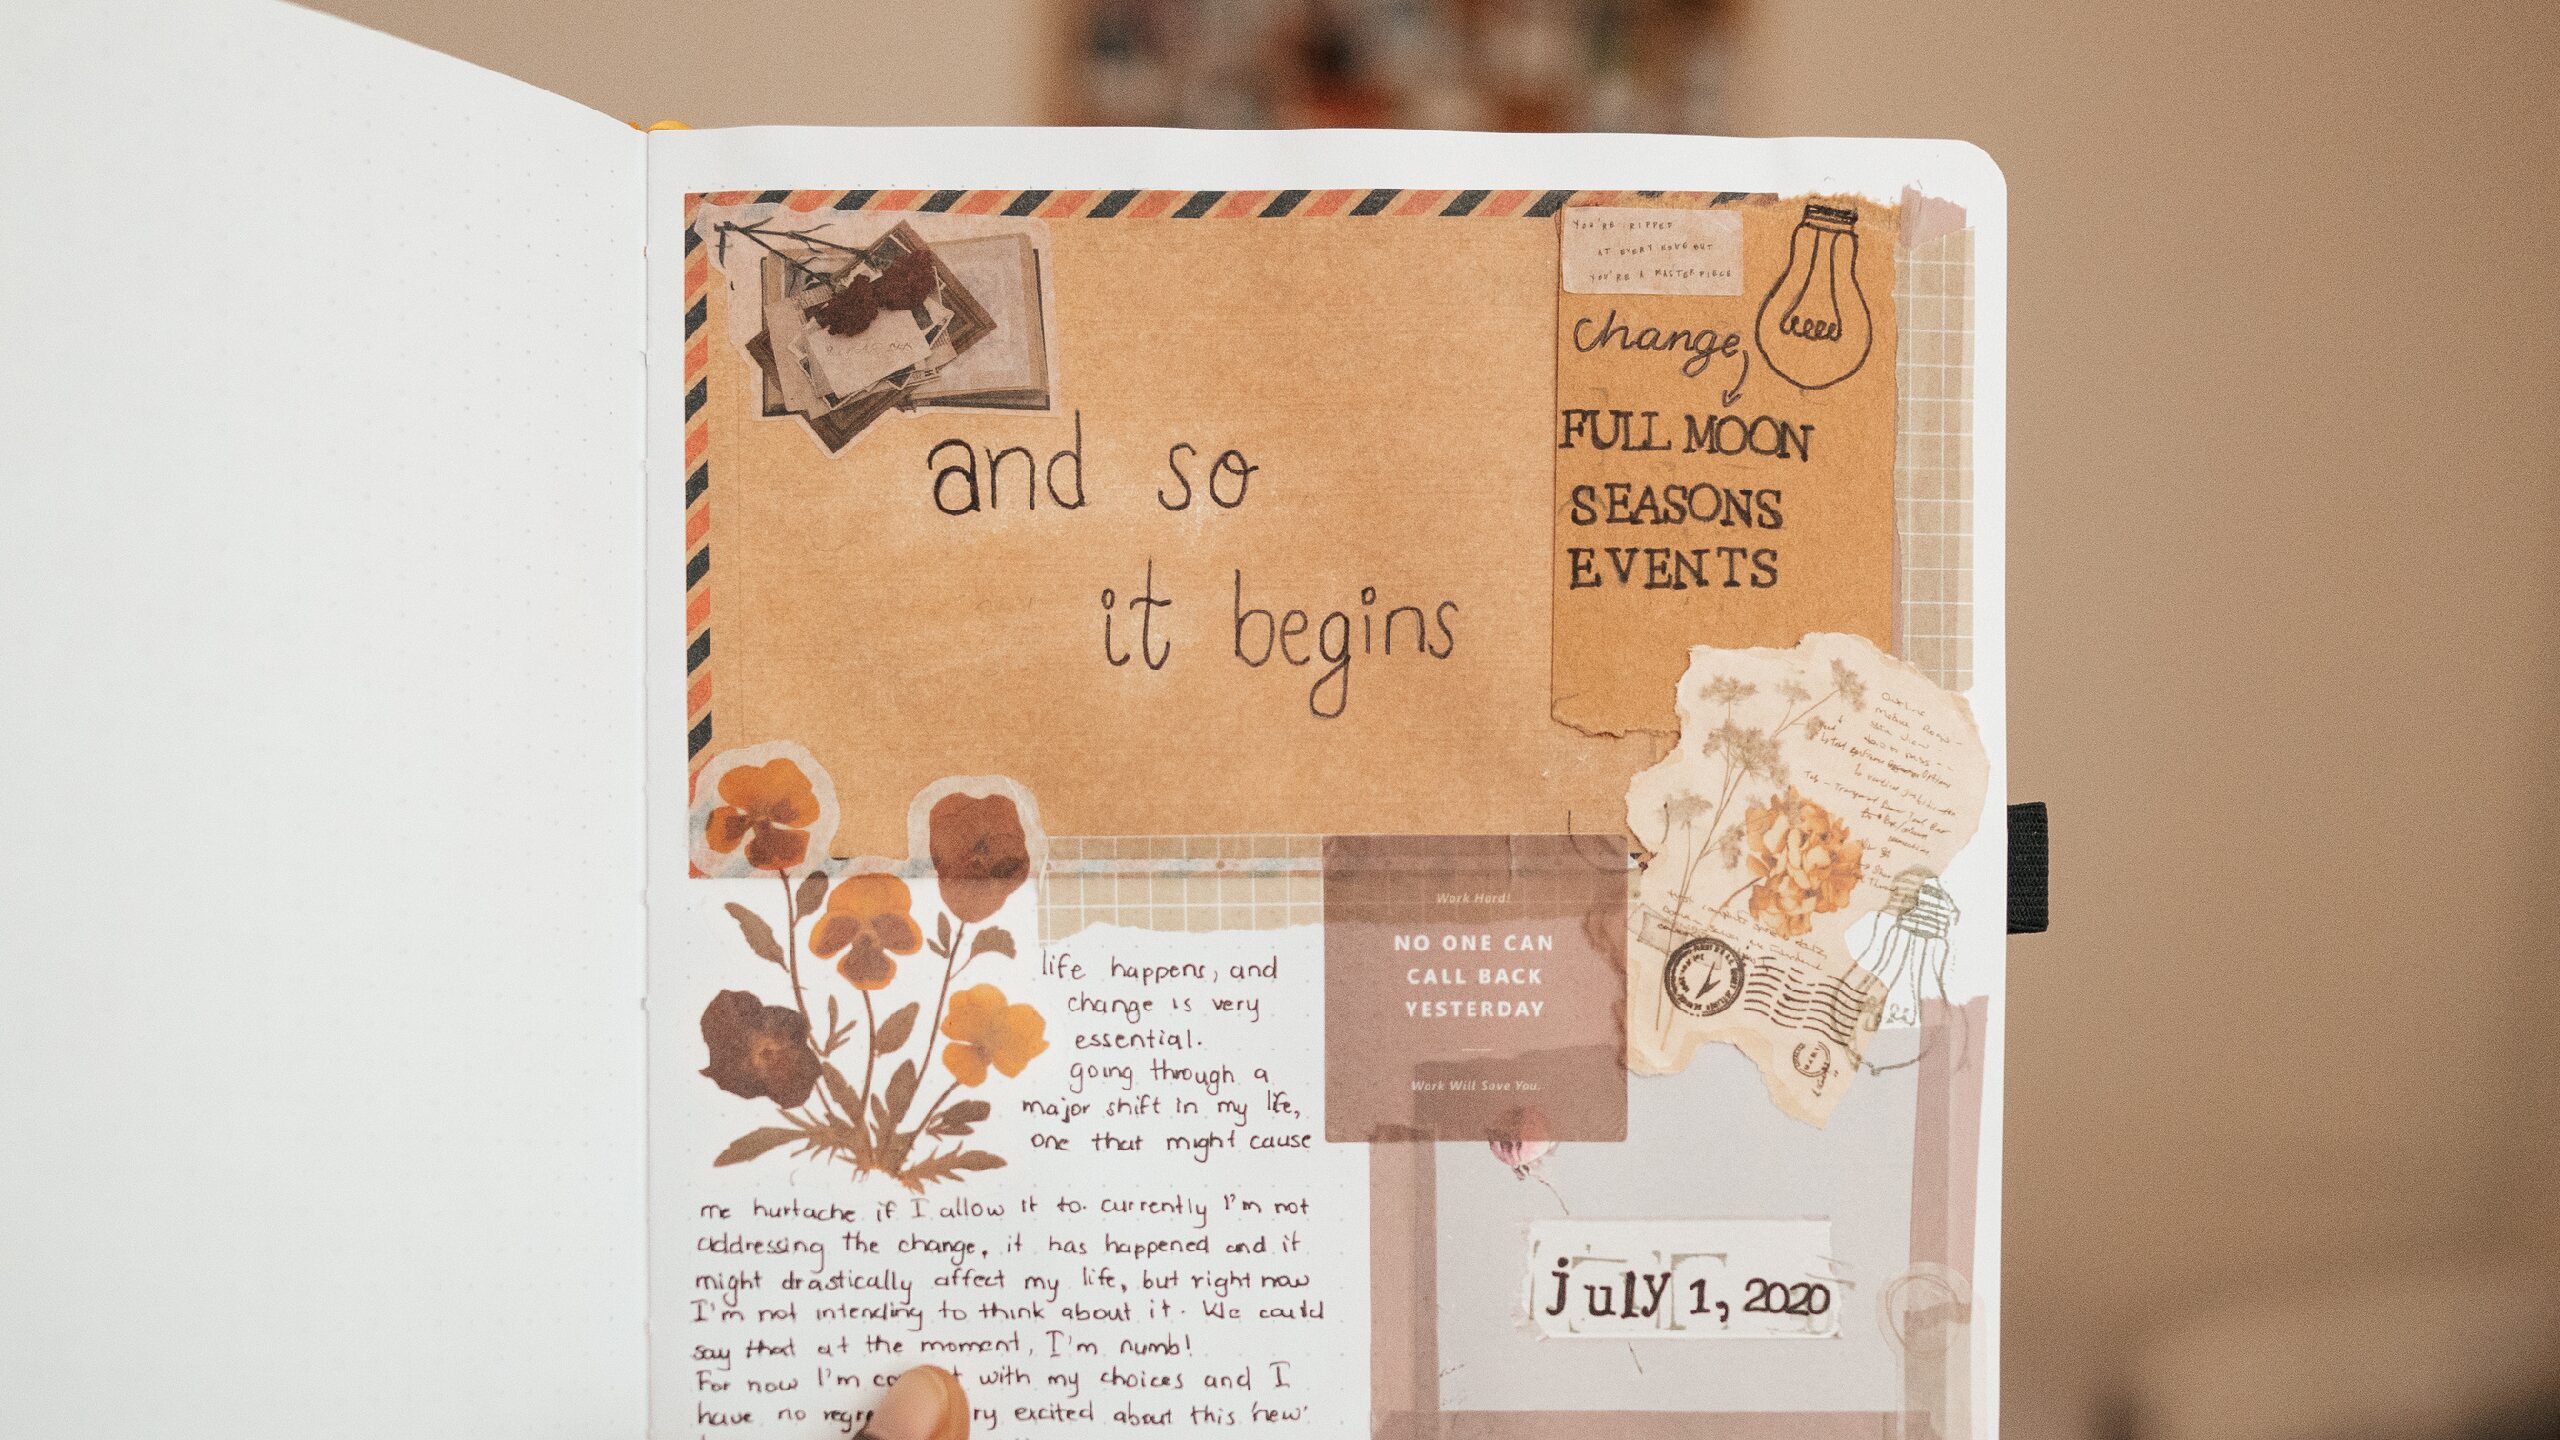 YOU'RE RIPPED
AT EVERY EDGE BUT
YOU'RE A MASTERPIECE
change
FULL MOON
SEASONS
EVENTS
and so
it begins
Work Hard!
NO ONE CAN
CALL BACK
YESTERDAY
Work Will Save You.
life happens, and
change is very
essential.
going through a
major shift in my life,
one that might cause
me hurtache if I allow it to. currently I'm not
addressing the change, it has happened and it
might drastically affect my life, but right now
I'm not intending to think about it. We could
say that at the moment, I'm numb!
For now I'm with my choices and I
have no excited about this 'new'
july 1, 2020